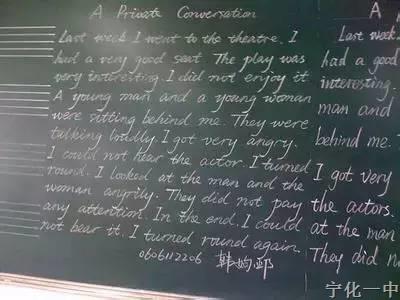 A Private Conversation
Last week I went to the theatre. I
had a very good seat. The play was
very interesting. I did not enjoy it.
A young man and a young woman
were sitting behind me. They were
talking loudly. I got very angry.
I could not hear the actor. I turned
round. I looked at the man and the
woman angrily. They did not pay
any attention. In the end, I could
not bear it. I turned round again.
0606112206
A
Last week
had a good
interesting.
man and
behind me. T
I got very
the actors.
at the man
They did n
宁化一中